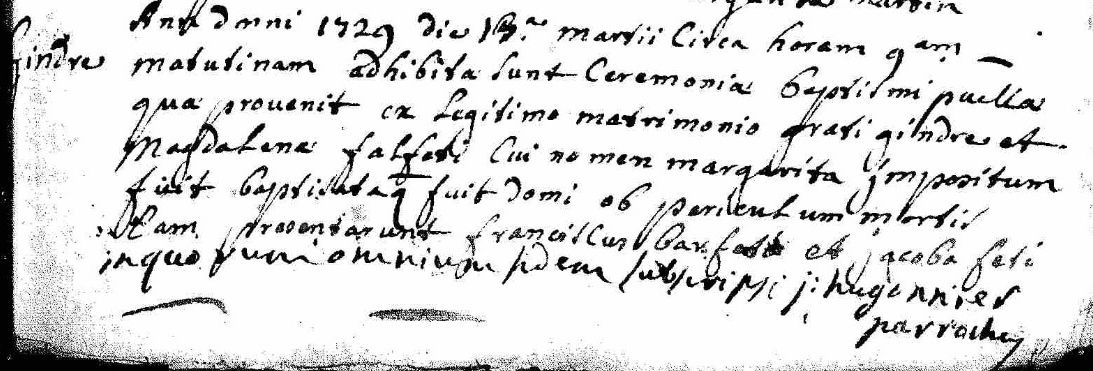 martin
Ano dnni 1729 die 13.a martii Circa horam 9am
gindre
matutinam adhibita sunt Ceremoniæ baptismi puellæ
quæ provenit ex legitimo matrimonio grati gindre et
Magdalenæ falfeti Cui nomen margarita jmpositum
fuit baptisataq fuit domi ob periculum mortis
Eam presentarunt franciscus barfeti et jacoba feti
jnquorum omnium fidem subscripsi j: hugonnier
parrochus